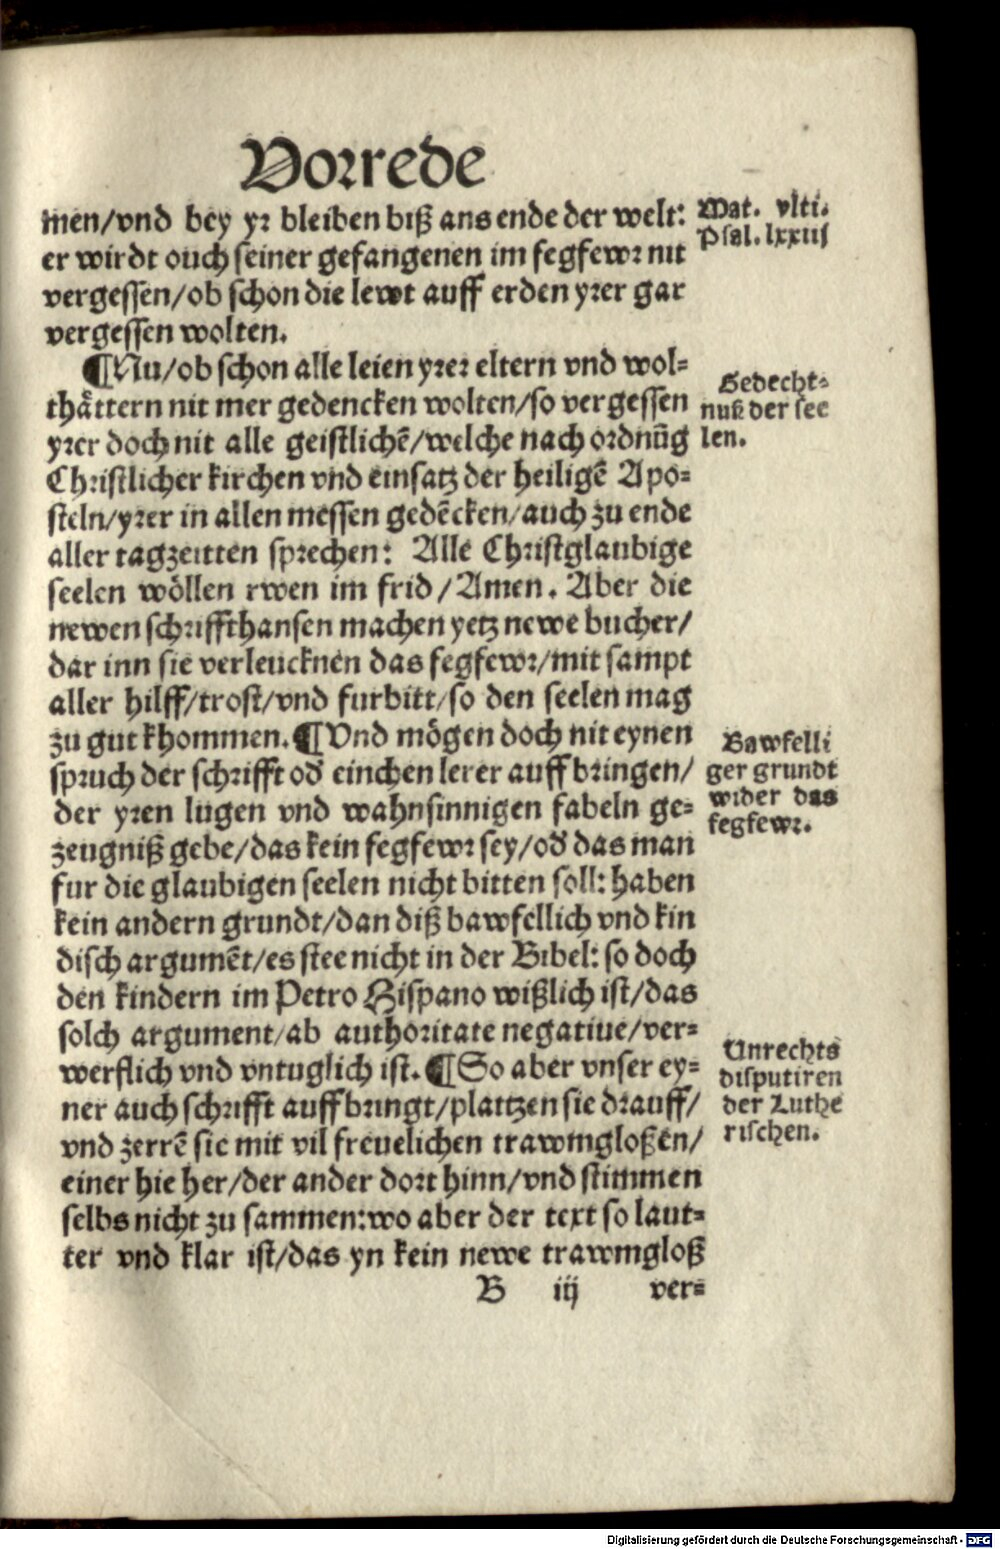 Vorrede
men/vnd bey yr bleiben biß ans ende der welt:
er wirdt ouch seiner gefangenen im fegfewr nit
vergessen/ob schon die lewt auff erden yrer gar
vergessen wolten.
¶Nu/ob schon alle leien yrer eltern vnd wol=
thättern nit mer gedencken wolten/so vergessen
yrer doch nit alle geistlichē/welche nach ordnūg
Christlicher kirchen vnd einsatz der heiligē Apo=
steln/yrer in allen messen gedēcken/auch zu ende
aller tagzeitten sprechen: Alle Christglaubige
seelen wöllen rwen im frid/Amen. Aber die
newen schriffthansen machen yetz newe bucher/
dar inn sie verleucknen das fegfewr/mit sampt
aller hilff/trost/vnd furbitt/so den seelen mag
zu gut khommen. ¶Vnd mögen doch nit eynen
spruch der schrifft od̄ einchen lerer auff bringen/
der yren lugen vnd wahnsinnigen fabeln ge=
zeugniß gebe/das kein fegfewr sey/od̄ das man
fur die glaubigen seelen nicht bitten soll: haben
kein andern grundt/dan diß bawfellich vnd kin
disch argumēt/es stee nicht in der Bibel: so doch
den kindern im Petro Hispano wißlich ist/das
solch argument/ab authoritate negatiue/ver=
werflich vnd vntuglich ist. ¶So aber vnser ey=
ner auch schrifft auff bringt/plattzen sie drauff/
vnd zerrē sie mit vil freuelichen trawmgloßen/
einer hie her/der ander dort hinn/vnd stimmen
selbs nicht zu sammen:wo aber der text so laut=
ter vnd klar ist/das yn kein newe trawmgloß
B iij ver=
Mat. vlti.
Psal. lxxiij
Gedecht=
nuß der see
len.
Bawfelli
ger grundt
wider das
fegfewr.
Unrechts
disputiren
der Luthe
rischen.
Digitalisierung gefördert durch die Deutsche Forschungsgemeinschaft - DFG